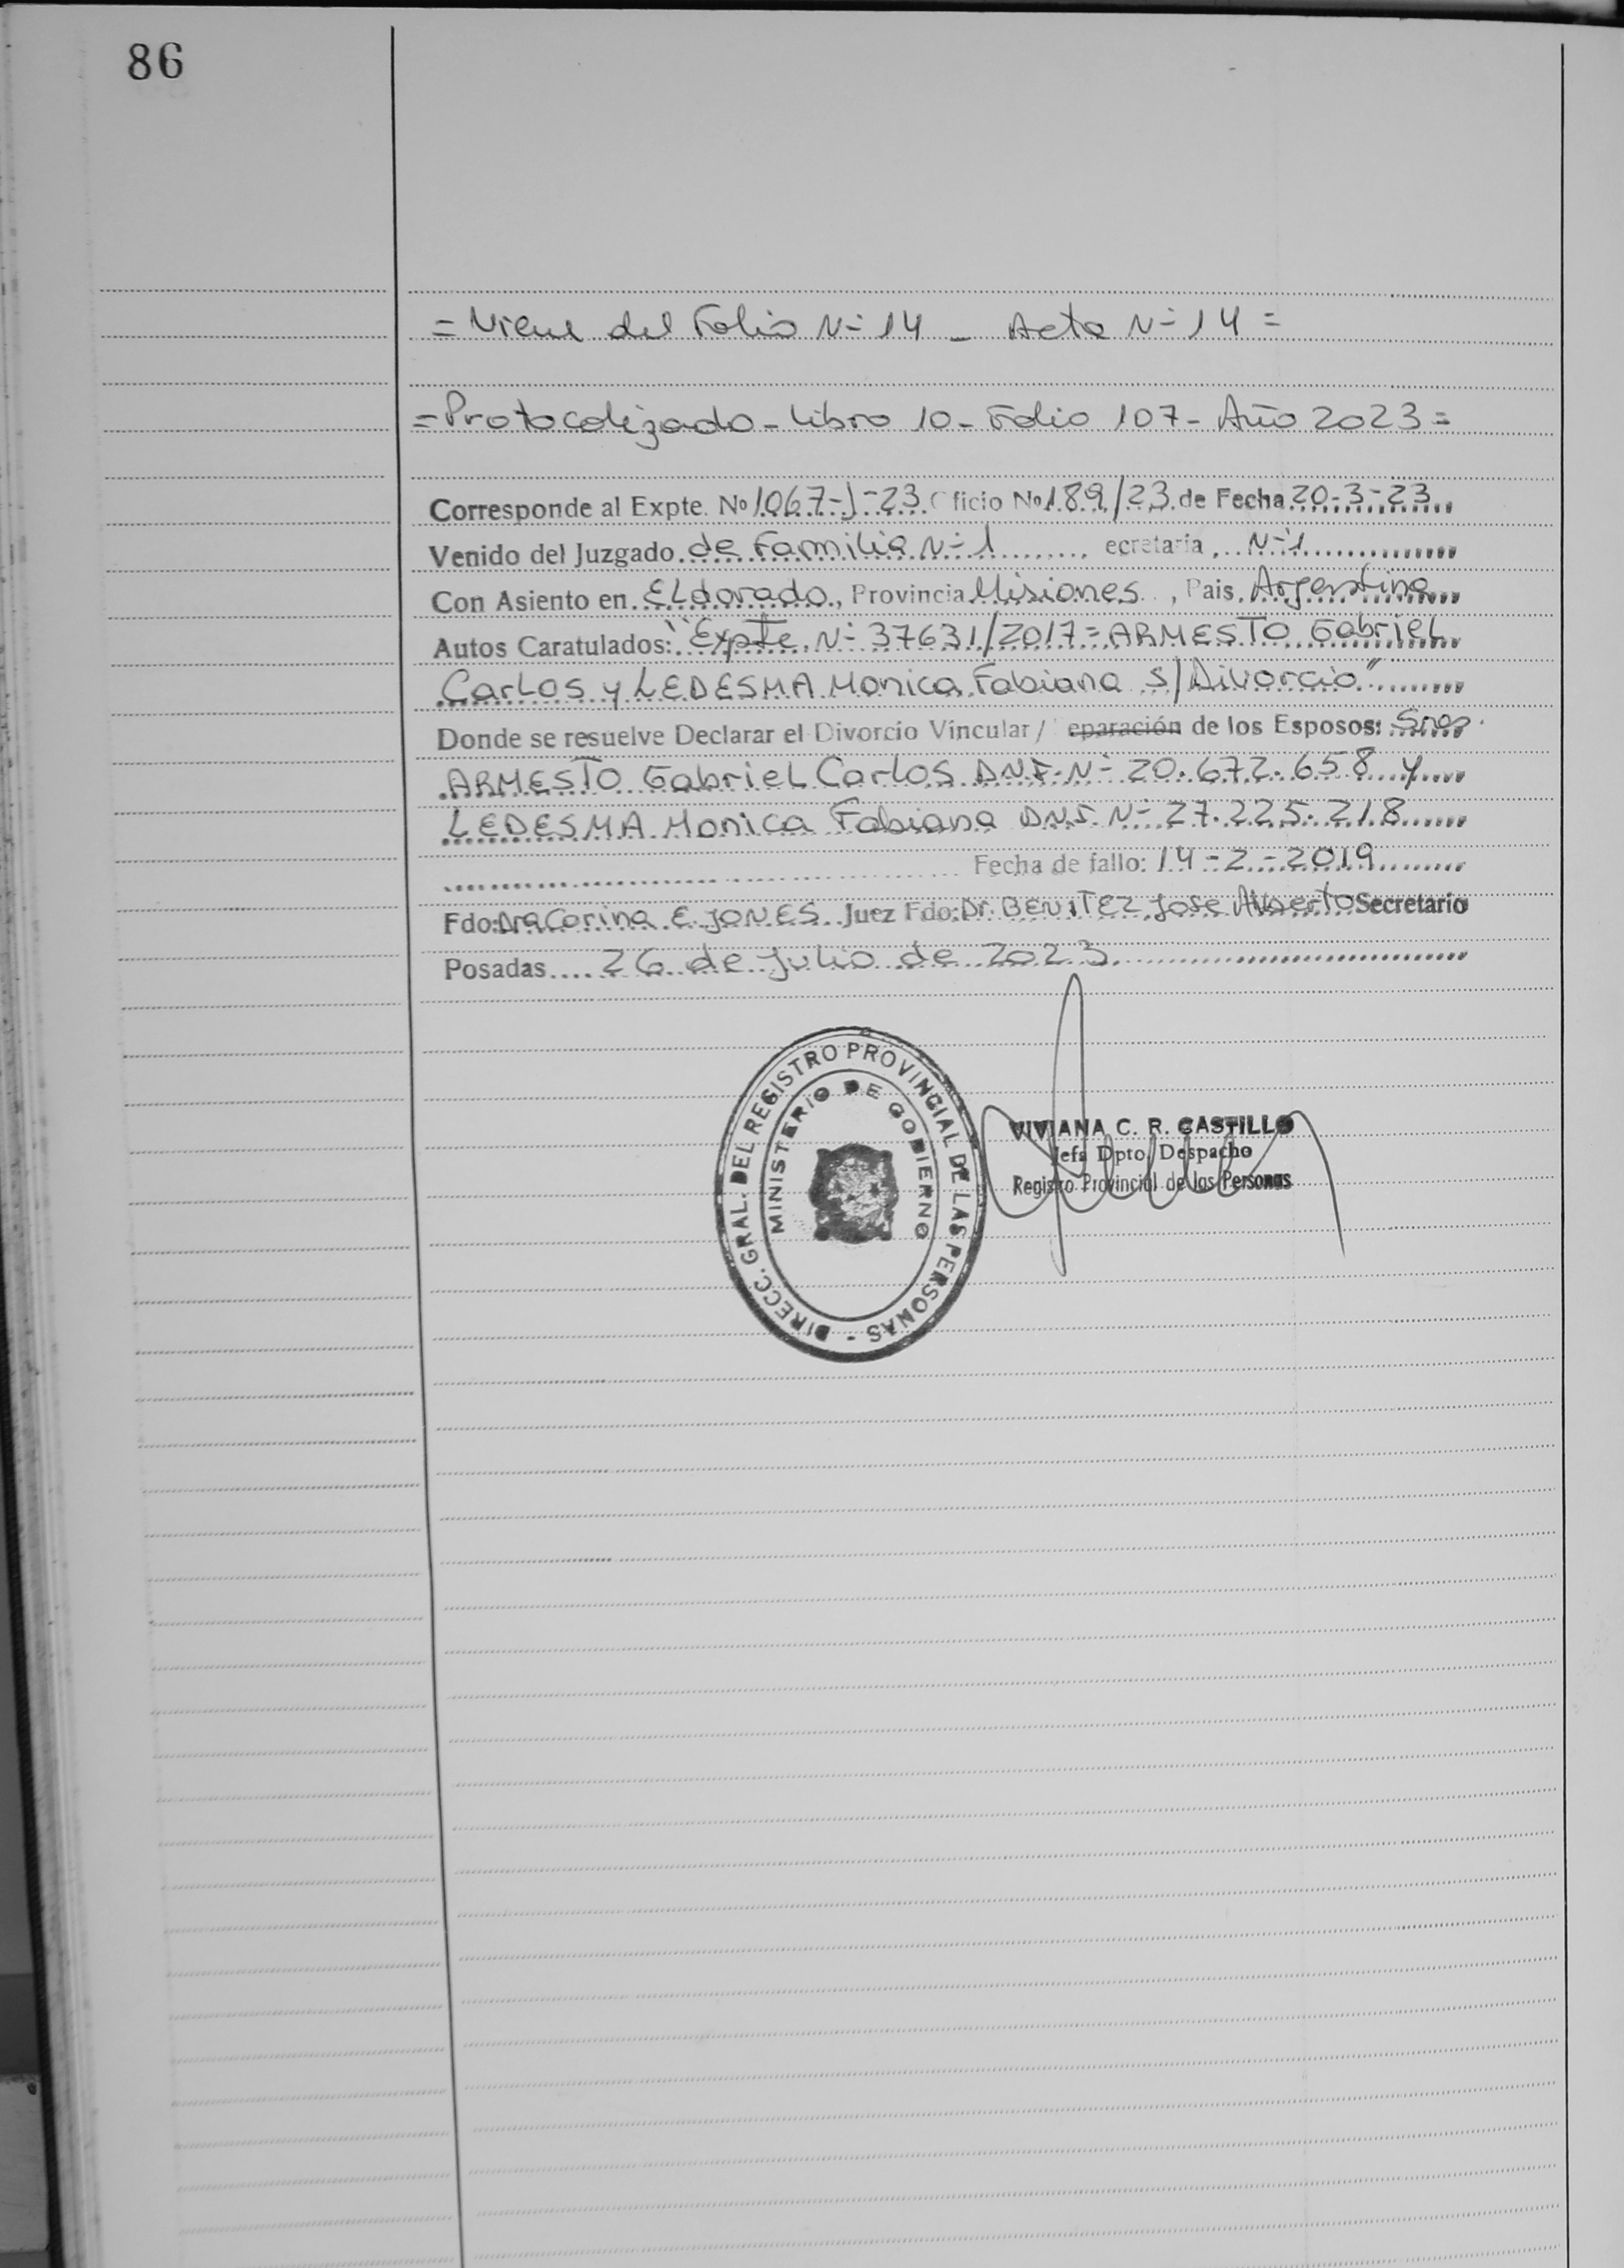 86
= Viene del Folio N= 14 _ Acta N= 14 =
= Protocolizado - Libro 10 - Folio 107 - Año 2023 =
Corresponde al Expte. Nº 1067-J-23 Oficio Nº 189/23 de Fecha 20-3-23
Venido del Juzgado de Familia N= 1 ecretaria, N=1
Con Asiento en ELdorado, Provincia Misiones, Pais. Argentina
Autos Caratulados: "Expte. N= 37631/2017 = ARMESTO Gabriel
Carlos y LEDESMA Monica Fabiana S/Divorcio"
Donde se resuelve Declarar el Divorcio Vincular / eparación de los Esposos: Sres.
ARMESTO Gabriel Carlos DNI. N= 20.672.658 y
LEDESMA Monica Fabiana DNI. N= 27.225.218
Fecha de fallo: 14-2-2019
Fdo: Dra Corina E. JONES Juez Fdo: Dr. BENITEZ Jose Alberto Secretario
Posadas 26 de Julio de 2023
DIRECC. GRAL. DEL REGISTRO PROVINCIAL DE LAS PERSONAS -
MINISTERIO DE GOBIERNO
VIVIANA C. R. CASTILLO
Jefa Dpto. Despacho
Registro Provincial de las Personas